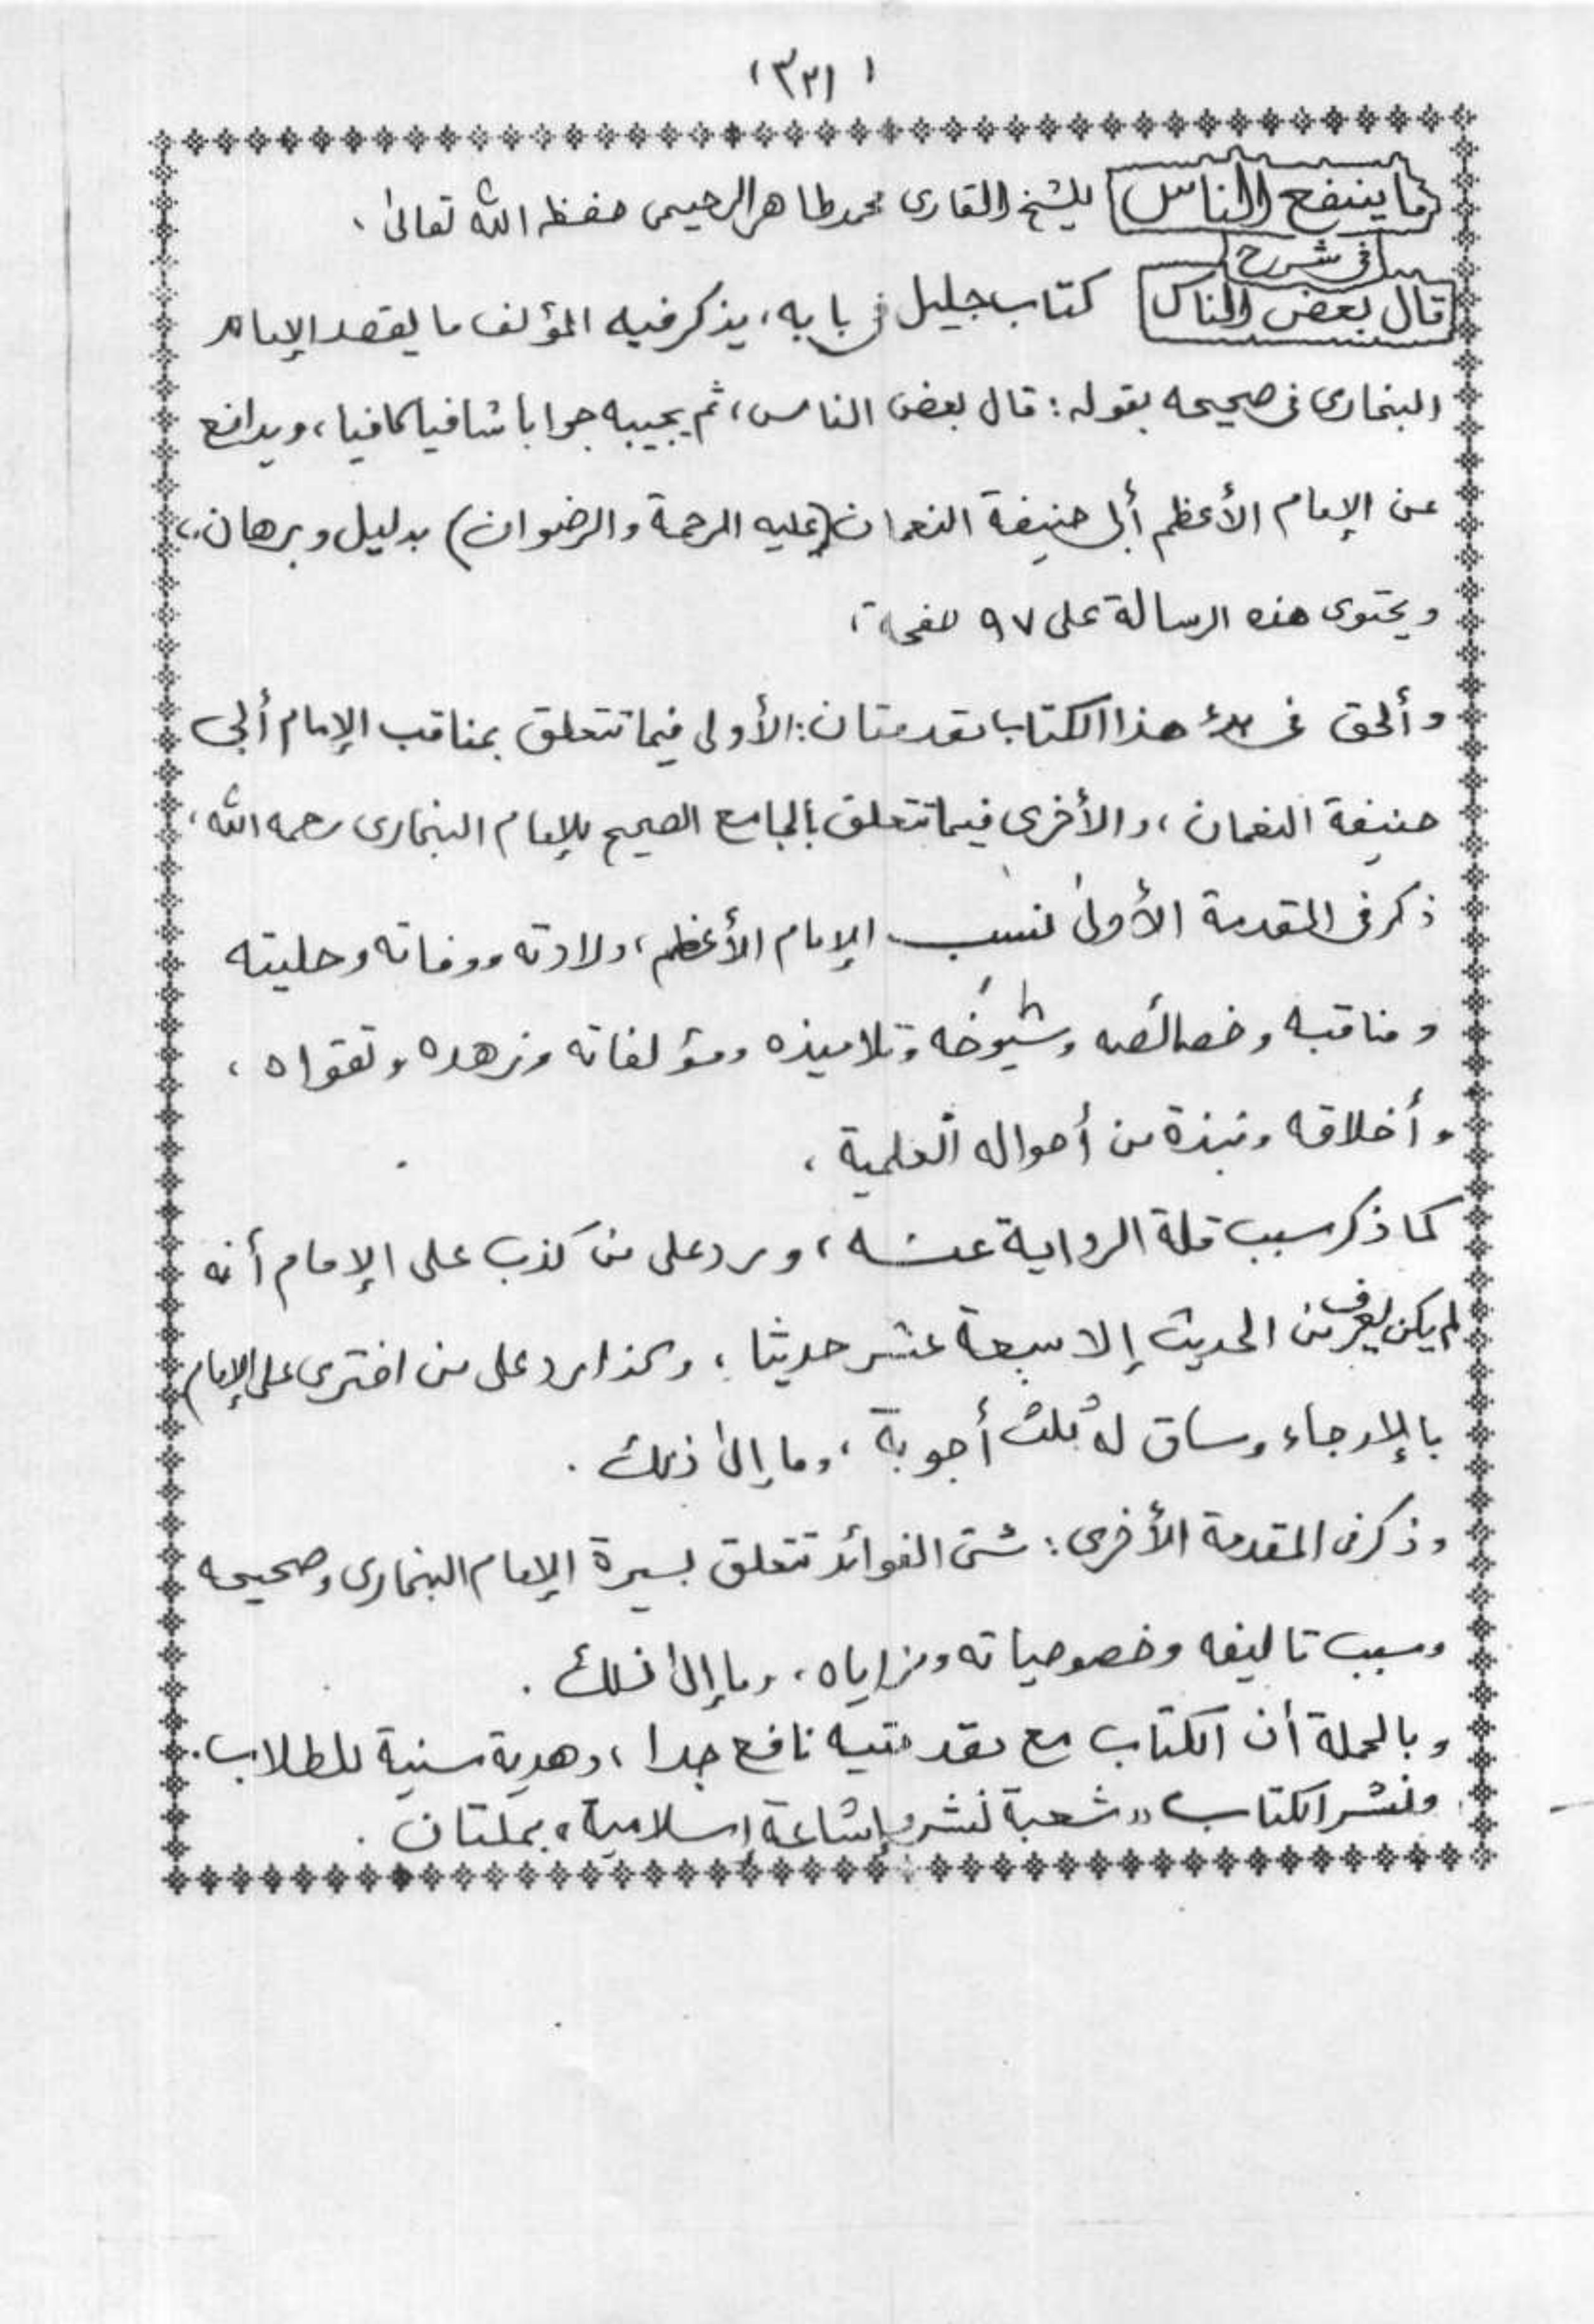 (٣٣١)
ما ينفع الناس للشيخ القارى محمد طاهر الرحيمى حفظه الله تعالىٰ ،
فى شرح
قال بعض الناس كتاب جليل فى بابه، يذكر فيه المؤلف ما يقصد الإمام
البخارى فى صحيحه بقوله : قال بعض الناس، ثم يجيبه جوابا شافيا كافيا، ويدافع
عن الإمام الأعظم أبى حنيفة النعمان (عليه الرحمة والرضوان) بدليل وبرهان،
ويحتوى هذه الرسالة على ٩٧ صفحة ،
وألحق فى بدء هذا الكتاب مقدمتان : الأولى فيما تتعلق بمناقب الإمام أبى
حنيفة النعمان، والأخرى فيما تتعلق بالجامع الصحيح للإمام البخارى رحمه الله ،
ذكر فى المقدمة الأولىٰ نسب الإمام الأعظم، ولادته ووفاته وحليته
ومناقبه وخصائصه وشيوخه وتلاميذه ومؤلفاته وزهده وتقواه ،
وأخلاقه ونبذة من أحواله العلمية ،
كما ذكر سبب قلة الرواية عنه ، ورد على من كذب على الإمام أنه
لم يكن يعرف من الحديث إلا سبعة عشر حديثا ، وكذا رد على من افترى على الإمام
بالإرجاء وساق له ثلث أجوبة ، وما إلىٰ ذلك .
وذكر فى المقدمة الأخرى : شتى الفوائد تتعلق بسيرة الإمام البخارى وصحيحه
وسبب تاليفه وخصوصياته ومزاياه ، وما إلىٰ ذلك .
وبالجملة أن الكتاب مع مقدمتيه نافع جدا ، وهدية سنية للطلاب .
ونشر الكتاب "شعبة نشر وإشاعة إسلامية" بملتان .